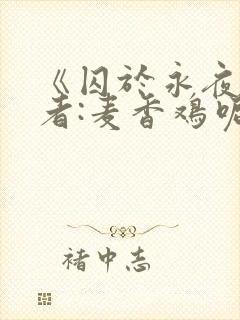 《囚於永夜
者:麦香鸡呢
褚中志